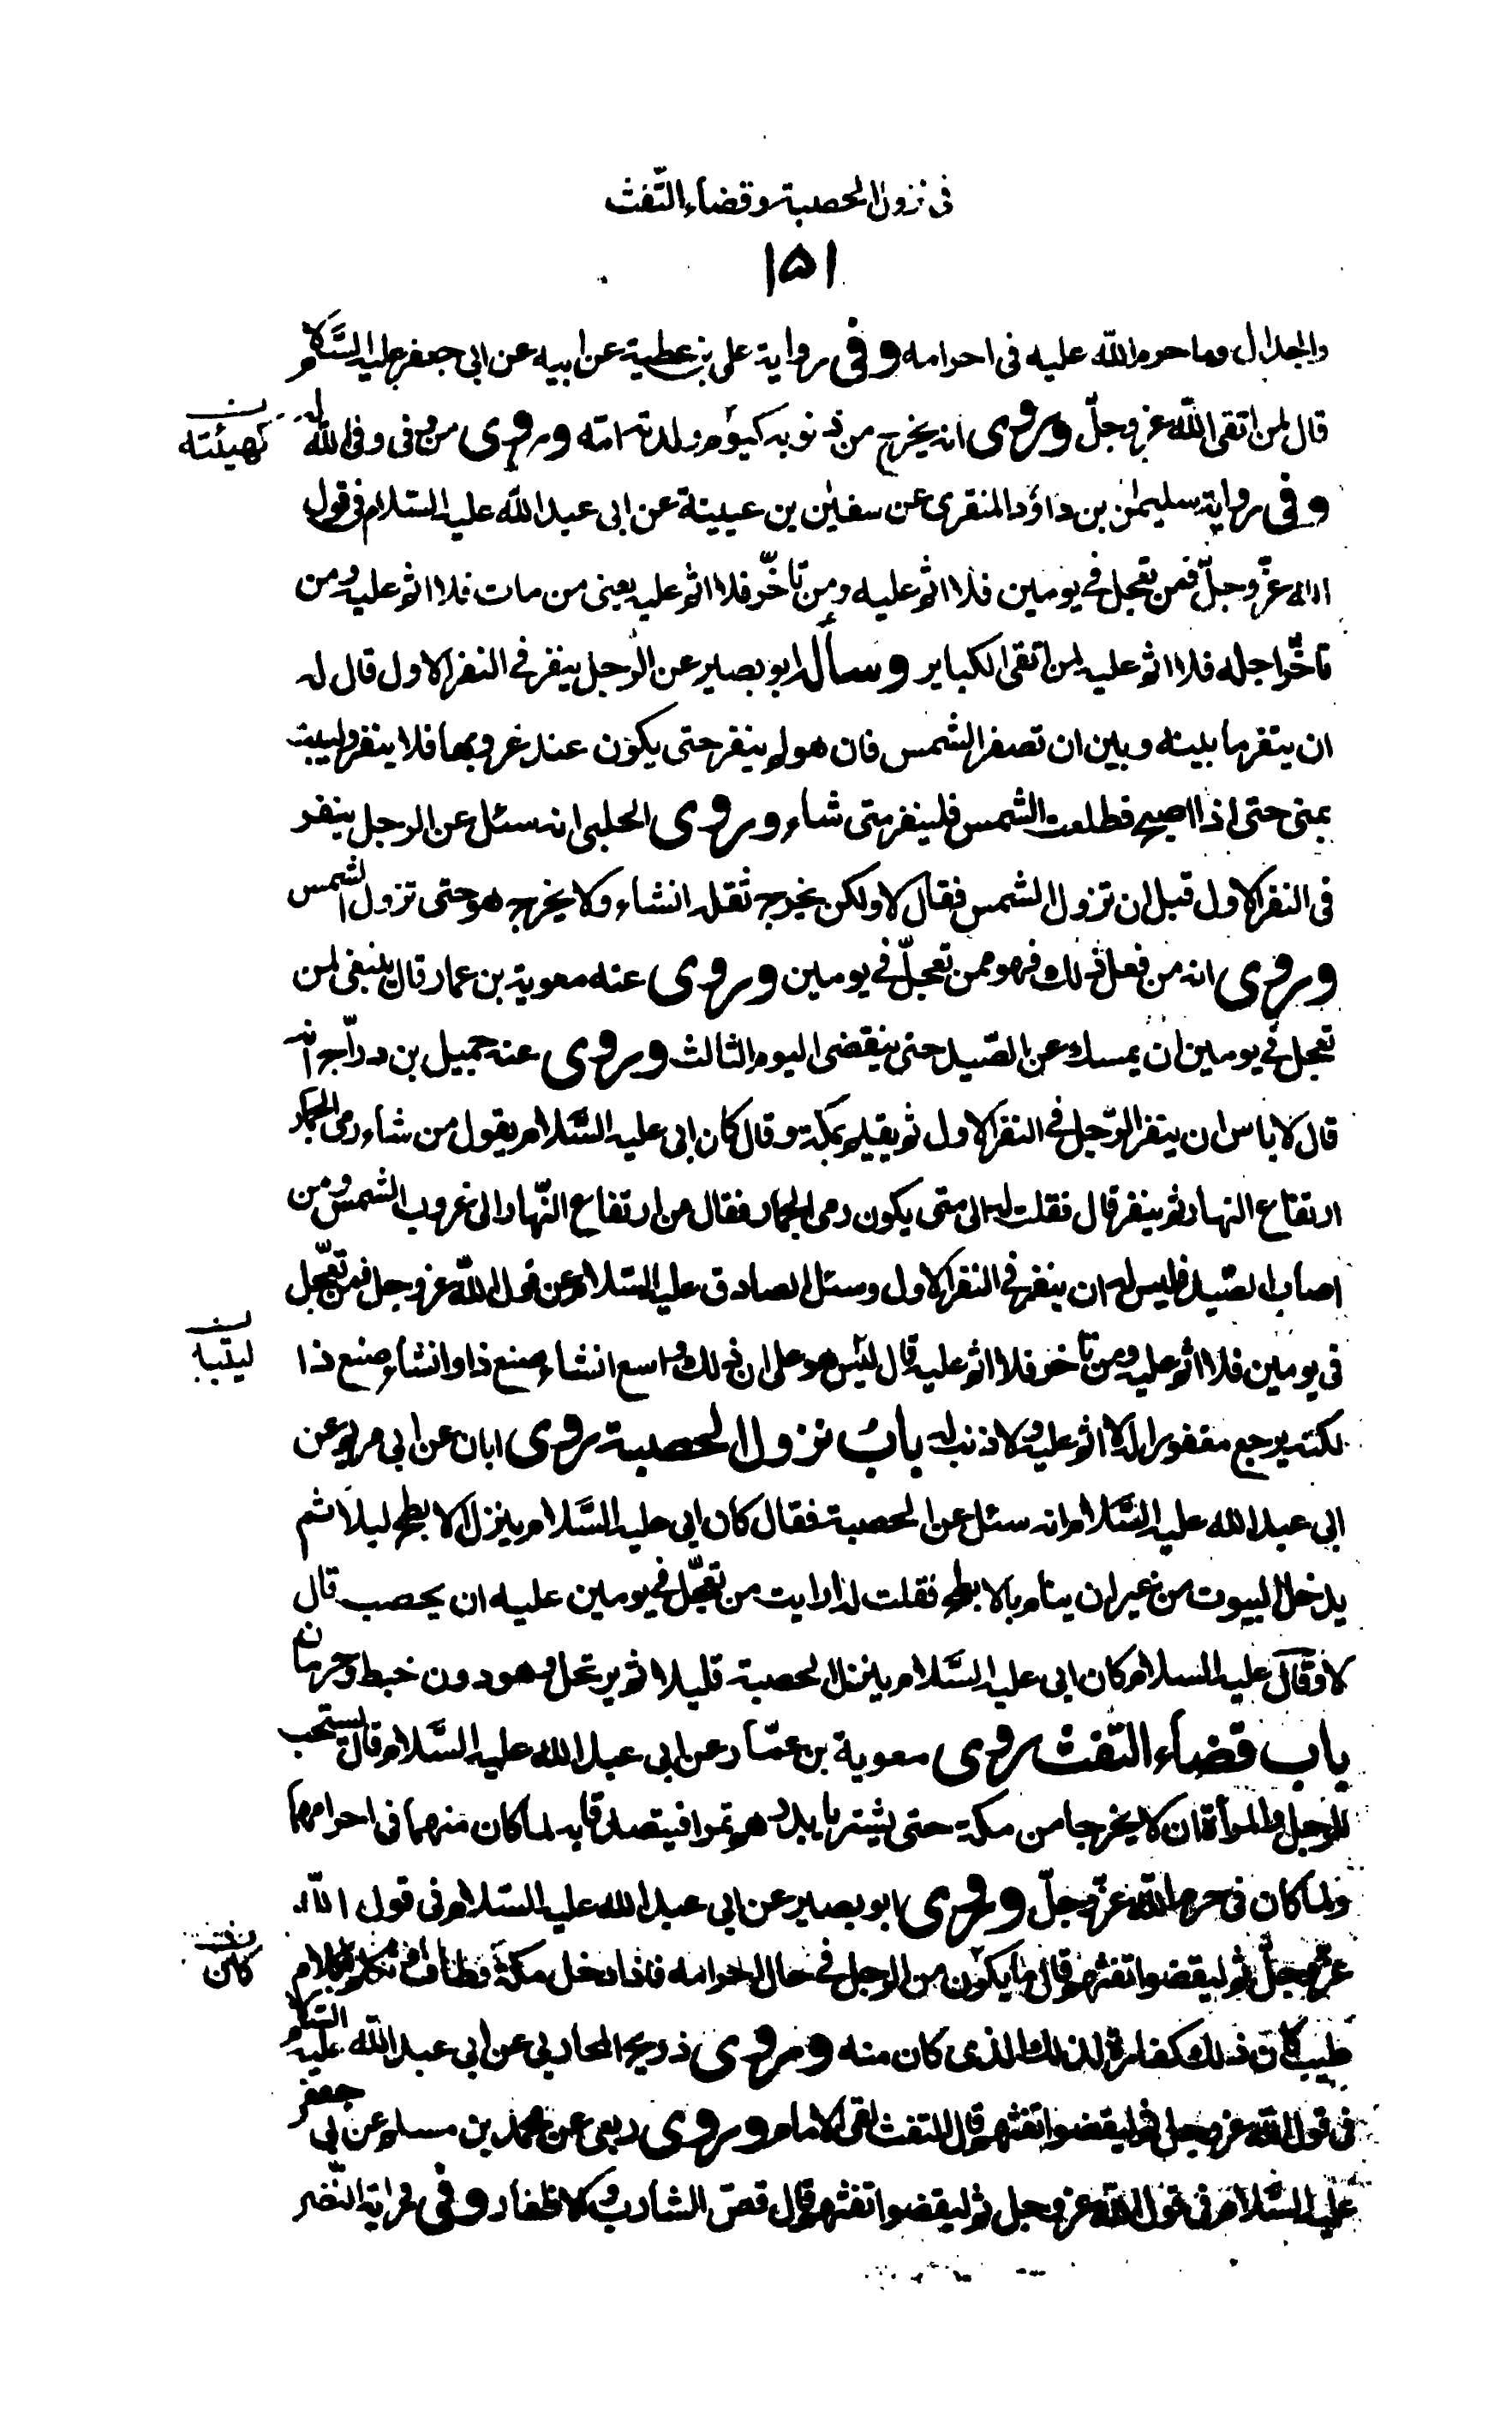 فی نزول الحصبة وقضاء التّفث
۱۵۱
والجدال وما حرم اللّه علیه فی احرامه وفی روایة علی بن عطیة عن ابیه عن ابی جعفر علیه السَّلام
قال لمن اتقی اللّه عز وجلّ وروی انه یخرج من ذنوبه کیوم ولدته امّه وروی من وفی وفی اللّه له
کهیئته
وفی روایة سلیمٰن بن داؤد المنقری عن سفیٰن بن عیینة عن ابی عبد اللّه علیه السّلام فی قول
اللّه عزّ وجلّ فمن تعجل فی یومین فلا اثم علیه ومن تاخّر فلا اثم علیه یعنی من مات فلا اثم علیه ومن
تاخّر اجله فلا اثم علیه لمن اتقی الکبایر وسأله ابو بصیر عن الرّجل ینفر فی النفر الاول قال له
ان ینفر ما بینه وبین ان تصفر الشمس فان هو لم ینفر حتی یکون عند غروبها فلا ینفر ولیبت
بمنی حتی اذا اصبح فطلعت الشمس فلینفر متی شاء وروی الحلبی انه سئل عن الرجل ینفر
فی النفر الاول قبل ان تزول الشمس فقال لا ولکن یخرج ثقله انشاء ولا یخرج هو حتی تزول الشمس
وروی انه من فعل ذلك فهو ممن تعجلّ فی یومین وروی عنه معویة بن عمار قال ینبغی لمن
تعجل فی یومین ان یمسك عن الصّید حتی ینقضی الیوم الثالث وروی عنه جمیل بن درّاج انه
قال لا باس ان ینفر الرّجل فی النفر الاول ثم یقیم بمکة وقال کان ابی علیه السَّلام یقول من شاء رمی الجمار
ارتفاع النهار ثم ینفر قال فقلت له الی متی یکون رمی الجمار فقال من ارتفاع النّهار الی غروب الشمس ومن
اصاب الصّید فلیس له ان ینفر فی النفر الاول وسئل الصادق علیه السّلام عن قول اللّه عز وجل فمن تعجّل
فی یومین فلا اثم علیه ومن تاخر فلا اثم علیه قال لیس هو علی ان ذلك واسع انشاء صنع ذا وانشاء صنع ذا
لکنه یرجع مغفورا له لا اثم علیه ولا ذنب له باب نزول الحصبة روی ابان عن ابی مریم عن
ابی عبد اللّه علیه السَّلام انه سئل عن الحصبة فقال کان ابی علیه السَّلام ینزل الابطح لیلا ثم
یدخل البیوت من غیر ان ینام بالابطح فقلت له ارایت من تعجّل فی یومین علیه ان یحصب قال
لا وقال علیه السلام کان ابی علیه السَّلام ینزل الحصبة قلیلا ثم یرتحل وهو دون خبط وحرمان
باب قضاء التفث روی معویة بن عمّار عن ابی عبد اللّه علیه السَّلام قال یستحب
للرجل والمرأة ان لا یخرجا من مکة حتی یشتریا بدرهم تمرا فیتصدقا به لما کان منهما فی احرامهما
ولما کان فی حرم اللّه عزّ وجلّ وروی ابو بصیر عن ابی عبد اللّه علیه السّلام فی قول اللّه
عزّ وجلّ ثم لیقضوا تفثهم قال ما یکون من الرجل فی حال احرامه فاذا دخل مکة فطاف وتکلم بکلام
کان
طیب کان ذلك کفارة لذلك الذی کان منه وروی ذریح المحاربی عن ابی عبد اللّه علیه السّلام
فی قول اللّه عز وجل ثم لیقضوا تفثهم قال التفث لقی الامام وروی ربعی عن محمد بن مسلم عن ابی جعفر
علیه السَّلام فی قول اللّه عز وجل ثم لیقضوا تفثهم قال قصّ الشارب والاظفار وفی روایة النّضر